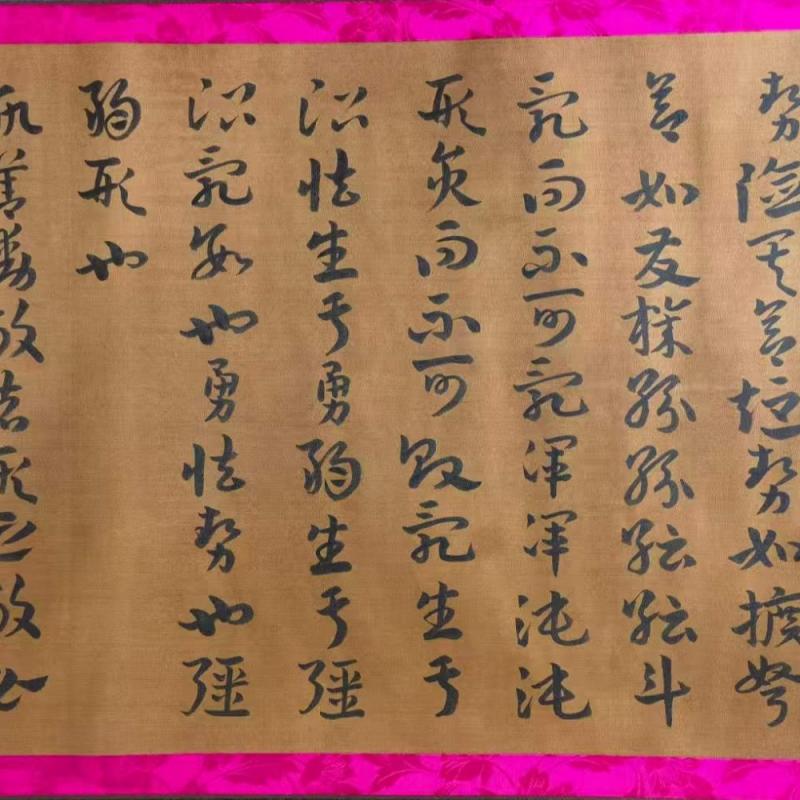 勢險其節短勢如擴弩
節如發機紛紛紜紜斗
亂而不可亂渾渾沌沌
形圓而不可敗亂生于
治怯生于勇弱生于彊
治亂數也勇怯勢也彊
弱形也
善動敵者形之敵必